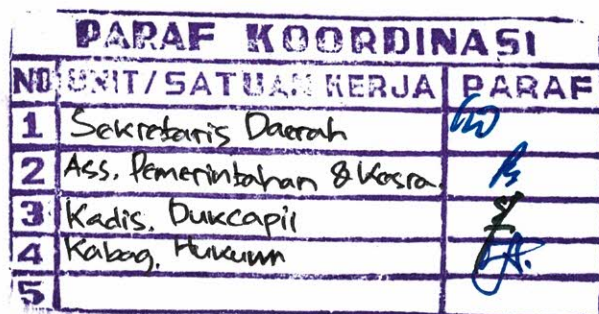 PARAF KOORDINASI
NO UNIT/SATUAN KERJA PARAF
1 Sekretaris Daerah
2 Ass. Pemerintahan & Kesra.
3 Kadis. Dukcapil
4 Kabag. Hukum
5